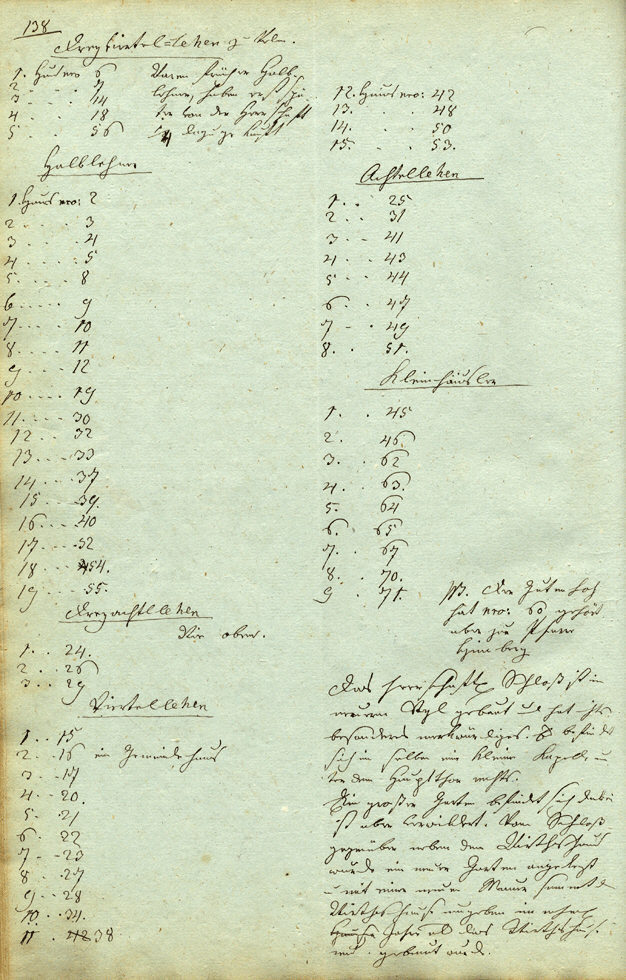 138
Dreyviertel=Lehen
1. Haus nro 6 Waren früher Halb-
2 . . . 7 lehner, haben erst spä-
3 . . . 14 ter von der Herrschaft
4 . . . 18 1/4 dazu gekauft
5 . . . 56
Halblehner
1. Haus nro: 2
2 . . . . 3
3 . . . . 4
4 . . . . 5
5 . . . . 8
6 . . . . 9
7 . . . . 10
8 . . . . 11
9 . . . . 12
10 . . . . 19
11 . . . . 30
12 . . . 32
13 . . . 33
14 . . . 37
15 . . . 39.
16 . . . 40
17 . . . 52
18 . . . 54.
19 . . . 55.
Dreyachtllehen
Wie oben.
1 . . 24.
2 . . 26
3 . . 29
Viertellehen
1 . . 15
2 . . 16 ein Gemeindehaus
3 . . 17
4 . . 20.
5 . . 21
6 . . 22
7 . . 23
8 . . 27
9 . . 28
10 . . 34.
11 . 38
12. Haus nro: 42
13. . . 48
14. . . 50
15. . . 53.
Achtellehen
1 . . 25
2 . . 31
3 . . 41
4 . . 43
5 . . 44
6 . . 47
7 . . 49
8. . 51.
Kleinhäusler
1. . 45
2. 46.
3. . 62
4. . 63.
5. 64
6. . 65
7. . 67
8. . 70.
9 . 71.
NB. Der Gutenhof
hat nro: 60 gehört
aber zur Pfarre
Himberg
Das herrschaftl Schloß ist im
neuern Styl gebaut und hat nichts
besonders merkwürdiges. Es befindet
sich in selben eine kleine Kapelle, un-
ter dem Hauptthor rechts.
Ein großer Garten befindet sich dabei
ist aber verwildert. Vom Schloß
gegenüber neben dem Wirthshaus
wurde ein neuer Garten angelegt
u mit einer neuen Mauer sammt dem
Wirthshause umgeben im
Jahre als das Wirthshaus
neu gebaut wurde.